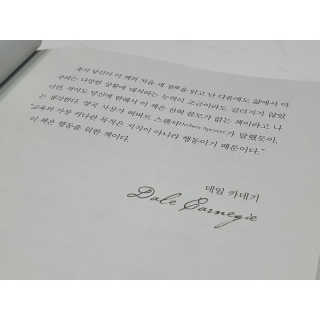 혹시 당신이 이 책의 처음 세 장을 읽고 난 다음에도 삶에서 마
주하는 다양한 상황에 대처하는 능력이 조금이라도 길러지지 않았
다면, 적어도 당신에 한해서 이 책은 전혀 쓸모가 없는 책이라고 나
는 생각한다. 영국 사상가 허버트 스펜서(Herbert Spencer)가 말했듯이,
"교육의 가장 커다란 목적은 지식이 아니라 행동이기 때문이다."
이 책은 행동을 위한 책이다.
데일 카네기
Dale Carnegie